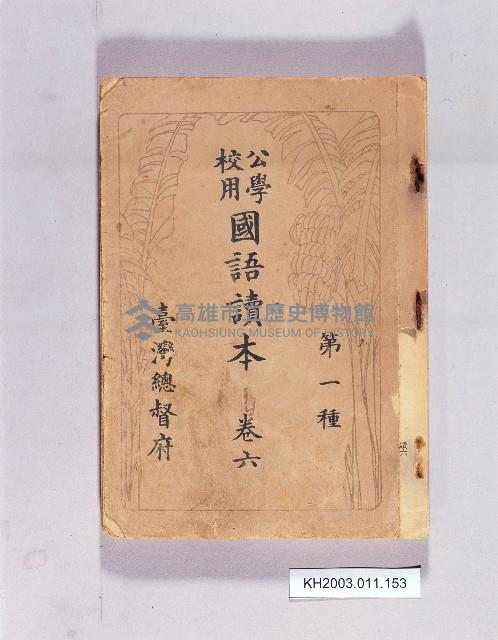 第一種
公學
校用
國語讀本 卷六
臺灣總督府
高雄市立歷史博物館
KAOHSIUNG MUSEUM OF HISTORY
KH2003.011.153